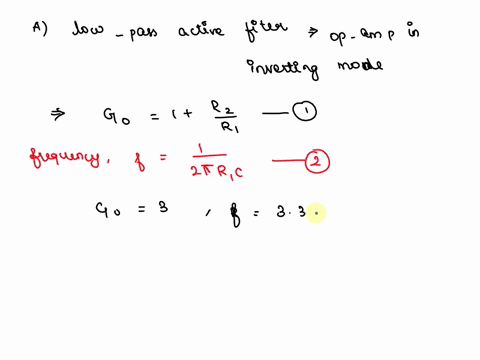 A) low-pass active fiter ⇒ op-amp in
inverting mode
⇒ G₀ = 1 + R₂/R₁ —— ①
frequency, f = 1/2πR₁C —— ②
G₀ = 3 , f = 3.3